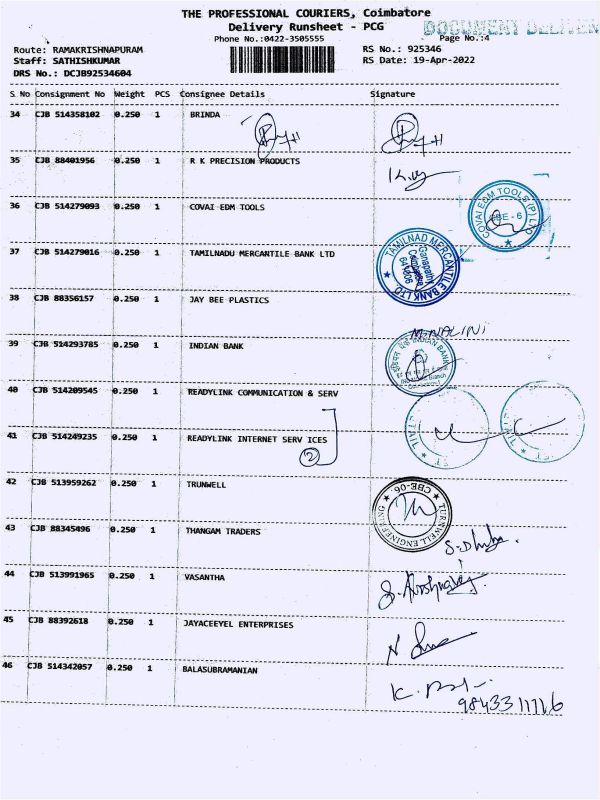 THE PROFESSIONAL COURIERS, Coimbatore
Delivery Runsheet - PCG
DOCUMENT DELIVER
Phone No.:0422-3505555
Page No.:4
Route: RAMAKRISHNAPURAM
RS No.: 925346
Staff: SATHISHKUMAR
RS Date: 19-Apr-2022
DRS No.: DCJB92534604
S No Consignment No Weight PCS Consignee Details Signature
34 CJB 514358102 0.250 1 BRINDA
35 CJB 88401956 0.250 1 R K PRECISION PRODUCTS
36 CJB 514279093 0.250 1 COVAI EDM TOOLS
COVAI EDM TOOLS (P) LTD
CBE - 6
37 CJB 514279016 0.250 1 TAMILNADU MERCANTILE BANK LTD
TAMILNAD MERCANTILE BANK LTD
Ganapathy
Coimbatore
641006
38 CJB 88356157 1 JAY BEE PLASTICS
0.250
M.NALINI
39 CJB 514293785 0.250 1 INDIAN BANK
INDIAN BANK
40 CJB 514209545 0.250 1 READYLINK COMMUNICATION & SERV
41 CJB 514249235 0.250 1 READYLINK INTERNET SERV ICES
2
42 CJB 513959262 0.250 1 TRUNWELL
TURNWELL ENGINEERING
CBE-06
43 CJB 88345496 0.250 1 THANGAM TRADERS
44 CJB 513991965 0.250 1 VASANTHA
45 CJB 88392618 0.250 1 JAYACEEYEL ENTERPRISES
46 CJB 514342057 0.250 1 BALASUBRAMANIAN